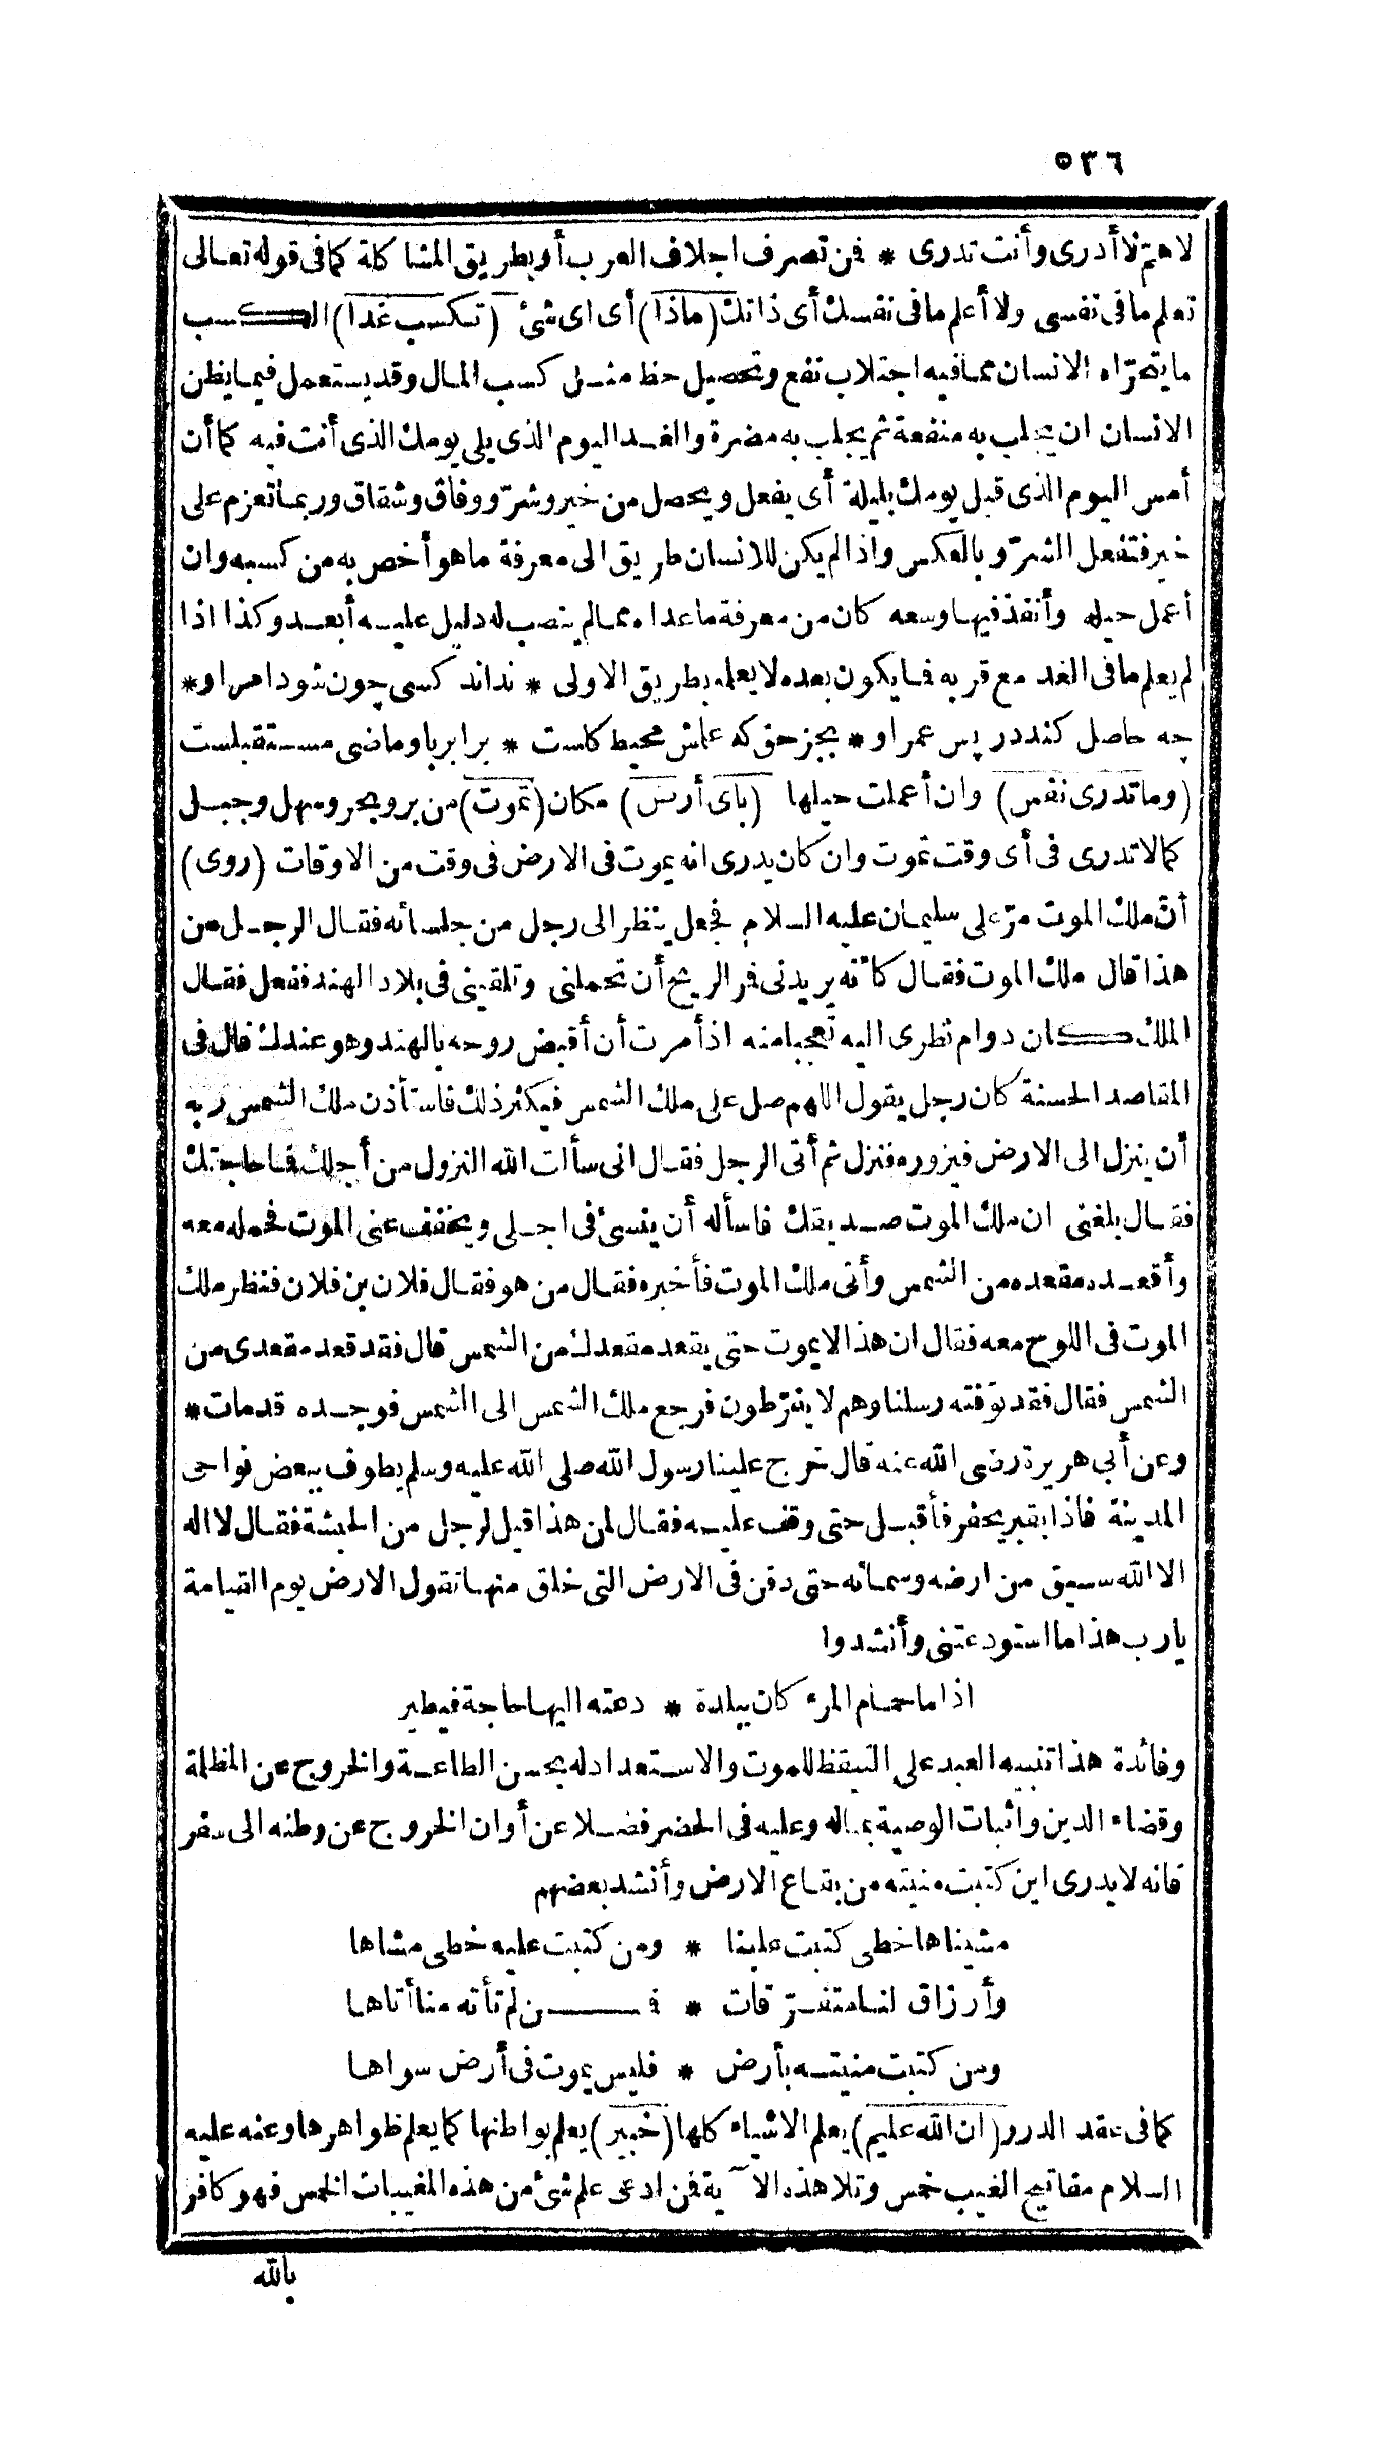 ٥٣٦
لاهمّ لا أدرى وأنت تدرى * فمن تصرف اجلاف العرب أو بطريق المشاكلة كما فى قوله تعالى
تعلم ما فى نفسى ولا أعلم ما فى نفسك أى ذاتك (ماذا) أى اى شئ (تكسب غدا) الكسب
ما يتحرّاه الانسان مما فيه اجتلاب نفع وتحصيل حظ مثل كسب المال وقد يستعمل فيما يظن
الانسان ان يجلب به منفعة ثم يجلب به مضرة والغد اليوم الذى يلى يومك الذى أنت فيه كما أن
أمس اليوم الذى قبل يومك بليلة أى يفعل ويحصل من خير وشرّ ووفاق وشقاق وربما تعزم على
خير فتفعل الشرّ وبالعكس واذا لم يكن للانسان طريق الى معرفة ما هو أخص به من كسبه وان
أعمل حيله وأنفذ فيها وسعه كان من معرفة ما عداه مما لم ينصب له دليل عليه أبعد وكذا اذا
لم يعلم ما فى الغد مع قربه فما يكون بعده لا يعلمه بطريق الاولى * نداند كسى چون شود امر او *
چه حاصل كند در پس عمر او * بجز حق كه علمش محيط كلست * برابر با وماضى مستقبلست
(وما تدرى نفس) وان أعملت حيلها (باى أرض) مكان (تموت) من بر وبحر وسهل وجبل
كما لا تدرى فى أى وقت تموت وان كان يدرى انه يموت فى الارض فى وقت من الاوقات (روى)
أنّ ملك الموت مرّ على سليمان عليه السلام فجعل ينظر الى رجل من جلسائه فقال الرجل من
هذا قال ملك الموت فقال كأنه يريدنى فمر الريح أن تحملنى وتلقينى فى بلاد الهند ففعل فقال
الملك كان دوام نظرى اليه تعجبا منه اذ أمرت أن أقبض روحه بالهند وهو عندك قال فى
المقاصد الحسنة كان رجل يقول اللهم صل على ملك الشمس فيكثر ذلك فاستأذن ملك الشمس ربه
أن ينزل الى الارض فيزوره فنزل ثم أتى الرجل فقال انى سألت الله النزول من أجلك فما حاجتك
فقال بلغنى ان ملك الموت صديقك فاسأله أن ينسئ فى اجلى ويخفف عنى الموت فحمله معه
وأقعده مقعده من الشمس وأتى ملك الموت فأخبره فقال من هو فقال فلان بن فلان فنظر ملك
الموت فى اللوح معه فقال ان هذا لا يموت حتى يقعد مقعدك من الشمس قال فقد قعد مقعدى من
الشمس فقال فقد توفته رسلنا وهم لا يفرّطون فرجع ملك الشمس الى الشمس فوجده قد مات *
وعن أبى هريرة رضى الله عنه قال خرج علينا رسول الله صلى الله عليه وسلم يطوف ببعض نواحى
المدينة فاذا بقبر يحفر فأقبل حتى وقف عليه فقال لمن هذا قيل لرجل من الحبشة فقال لا اله
الا الله سيق من ارضه وسمائه حتى دفن فى الارض التى خلق منها تقول الارض يوم القيامة
يارب هذا ما استودعتنى وأنشدوا
اذا ما حمام المرء كان ببلدة * دعته اليها حاجة فيطير
وفائدة هذا تنبيه العبد على التيقظ للموت والاستعداد له بحسن الطاعة والخروج عن المظلمة
وقضاء الدين واثبات الوصية بماله وعليه فى الحضر فضلا عن أوان الخروج عن وطنه الى سفر
فانه لا يدرى اين كتبت منيته من بقاع الارض وأنشد بعضهم
مشيناها خطى كتبت علينا * ومن كتبت عليه خطى مشاها
وأرزاق لنا متفرّقات * فمن لم تأته منا أتاها
ومن كتبت منيته بأرض * فليس يموت فى أرض سواها
كما فى عقد الدرر (ان الله عليم) يعلم الاشياء كلها (خبير) يعلم بواطنها كما يعلم ظواهرها وعنه عليه
السلام مفاتيح الغيب خمس وتلا هذه الآية فمن ادعى علم شئ من هذه المغيبات الخمس فهو كافر
بالله